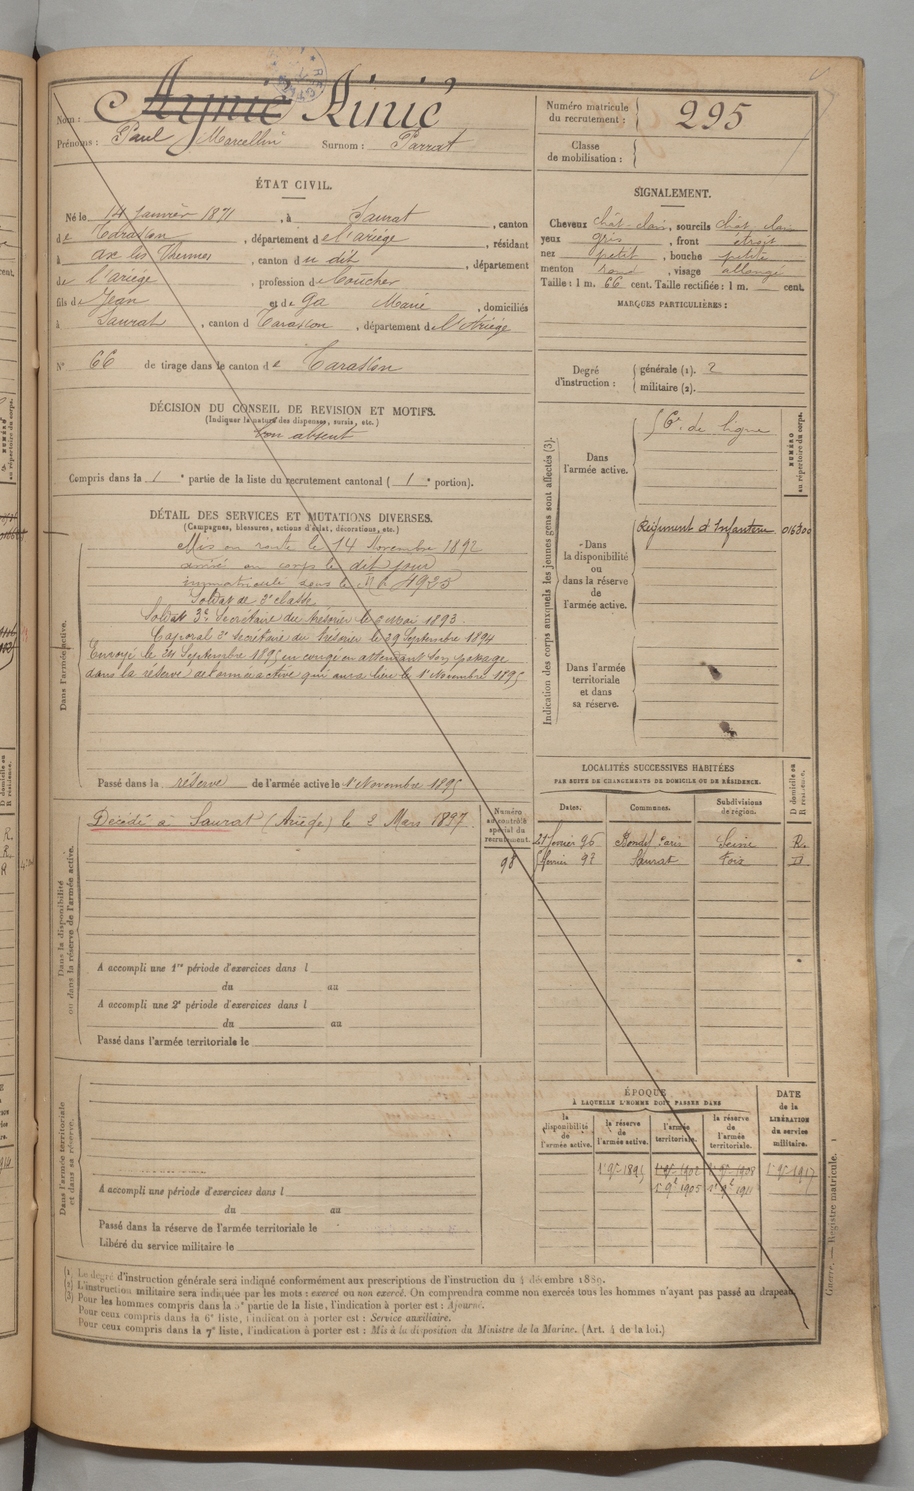 Nom : Aynié Rivié
Prénoms : Paul Marcellin Surnom : Parrat
Numéro matricule du recrutement : 295
Classe de mobilisation :
ÉTAT CIVIL.
Né le 14 Janvier 1871, à Saurat, canton
de Tarascon, département de l'ariège, résidant
à ax les Thermes, canton du dit, département
de l'ariège, profession de boucher
fils de Jean et de Ga Marie, domiciliés
à Saurat, canton d Tarascon, département de l'Ariège
N° 66 de tirage dans le canton de Tarascon
DÉCISION DU CONSEIL DE REVISION ET MOTIFS.
(Indiquer la nature des dispenses, sursis, etc.)
bon absent
Compris dans la 1e partie de la liste du recrutement cantonal (1e portion).
DÉTAIL DES SERVICES ET MUTATIONS DIVERSES.
(Campagnes, blessures, actions d'éclat, décorations, etc.)
Dans l'armée active.
Mis en route le 14 Novembre 1892
arrivé au corps le dit jour
immatriculé sous le N° 4925
Soldat de 2e classe
Soldat 3e Secrétaire du trésorier le Mai 1893
Caporal 2e Secrétaire du trésorier le 29 Septembre 1894
Envoyé le 24 Septembre 1895 en congé en attendant son passage
dans la réserve de l'armée active qui aura lieu le 1er Novembre 1895
Passé dans la réserve de l'armée active le 1er Novembre 1895
Dans la disponibilité ou dans la réserve de l'armée active.
Décédé à Saurat (Ariège) le 2 Mars 1897.
Numéro au contrôle spécial du recrutement.
98
A accompli une 1re période d'exercices dans l
du au
A accompli une 2e période d'exercices dans l
du au
Passé dans l'armée territoriale le
Dans l'armée territoriale et dans sa réserve.
A accompli une période d'exercices dans l
du au
Passé dans la réserve de l'armée territoriale le
Libéré du service militaire le
SIGNALEMENT.
Cheveux chât-clair, sourcils chât clair
yeux gris, front étroit
nez petit, bouche petite
menton rond, visage allongé
Taille : 1 m. 66 cent. Taille rectifiée : 1 m. cent.
MARQUES PARTICULIÈRES :
Degré d'instruction :
générale (1). 2
militaire (2).
Indication des corps auxquels les jeunes gens sont affectés (3).
NUMÉRO au répertoire du corps.
Dans l'armée active.
de ligne
Dans la disponibilité ou dans la réserve de l'armée active.
Régiment d'Infanterie 016300
Dans l'armée territoriale et dans sa réserve.
LOCALITÉS SUCCESSIVES HABITÉES
PAR SUITE DE CHANGEMENTS DE DOMICILE OU DE RÉSIDENCE.
Dates. Communes. Subdivisions de région. D domicile ou R résidence.
février 96 Paris Seine R.
février 97 Saurat Foix D
ÉPOQUE
À LAQUELLE L'HOMME DOIT PASSER DANS
la disponibilité de l'armée active. la réserve de l'armée active. l'armée territoriale. la réserve de l'armée territoriale.
DATE de la LIBÉRATION du service militaire.
1er 9e 1895 1er 9e 1902 1er 9e 1908 1er 9e 1917
1er 9e 1905 1er 9e 1911
(1) Le degré d'instruction générale sera indiqué conformément aux prescriptions de l'instruction du 4 décembre 1889.
(2) L'instruction militaire sera indiquée par les mots : exercé ou non exercé. On comprendra comme non exercés tous les hommes n'ayant pas passé au drapeau.
(3) Pour les hommes compris dans la 5e partie de la liste, l'indication à porter est : Ajourné.
Pour ceux compris dans la 6e liste, l'indication à porter est : Service auxiliaire.
Pour ceux compris dans la 7e liste, l'indication à porter est : Mis à la disposition du Ministre de la Marine. (Art. 4 de la loi.)
Guerre. — Registre matricule. 1